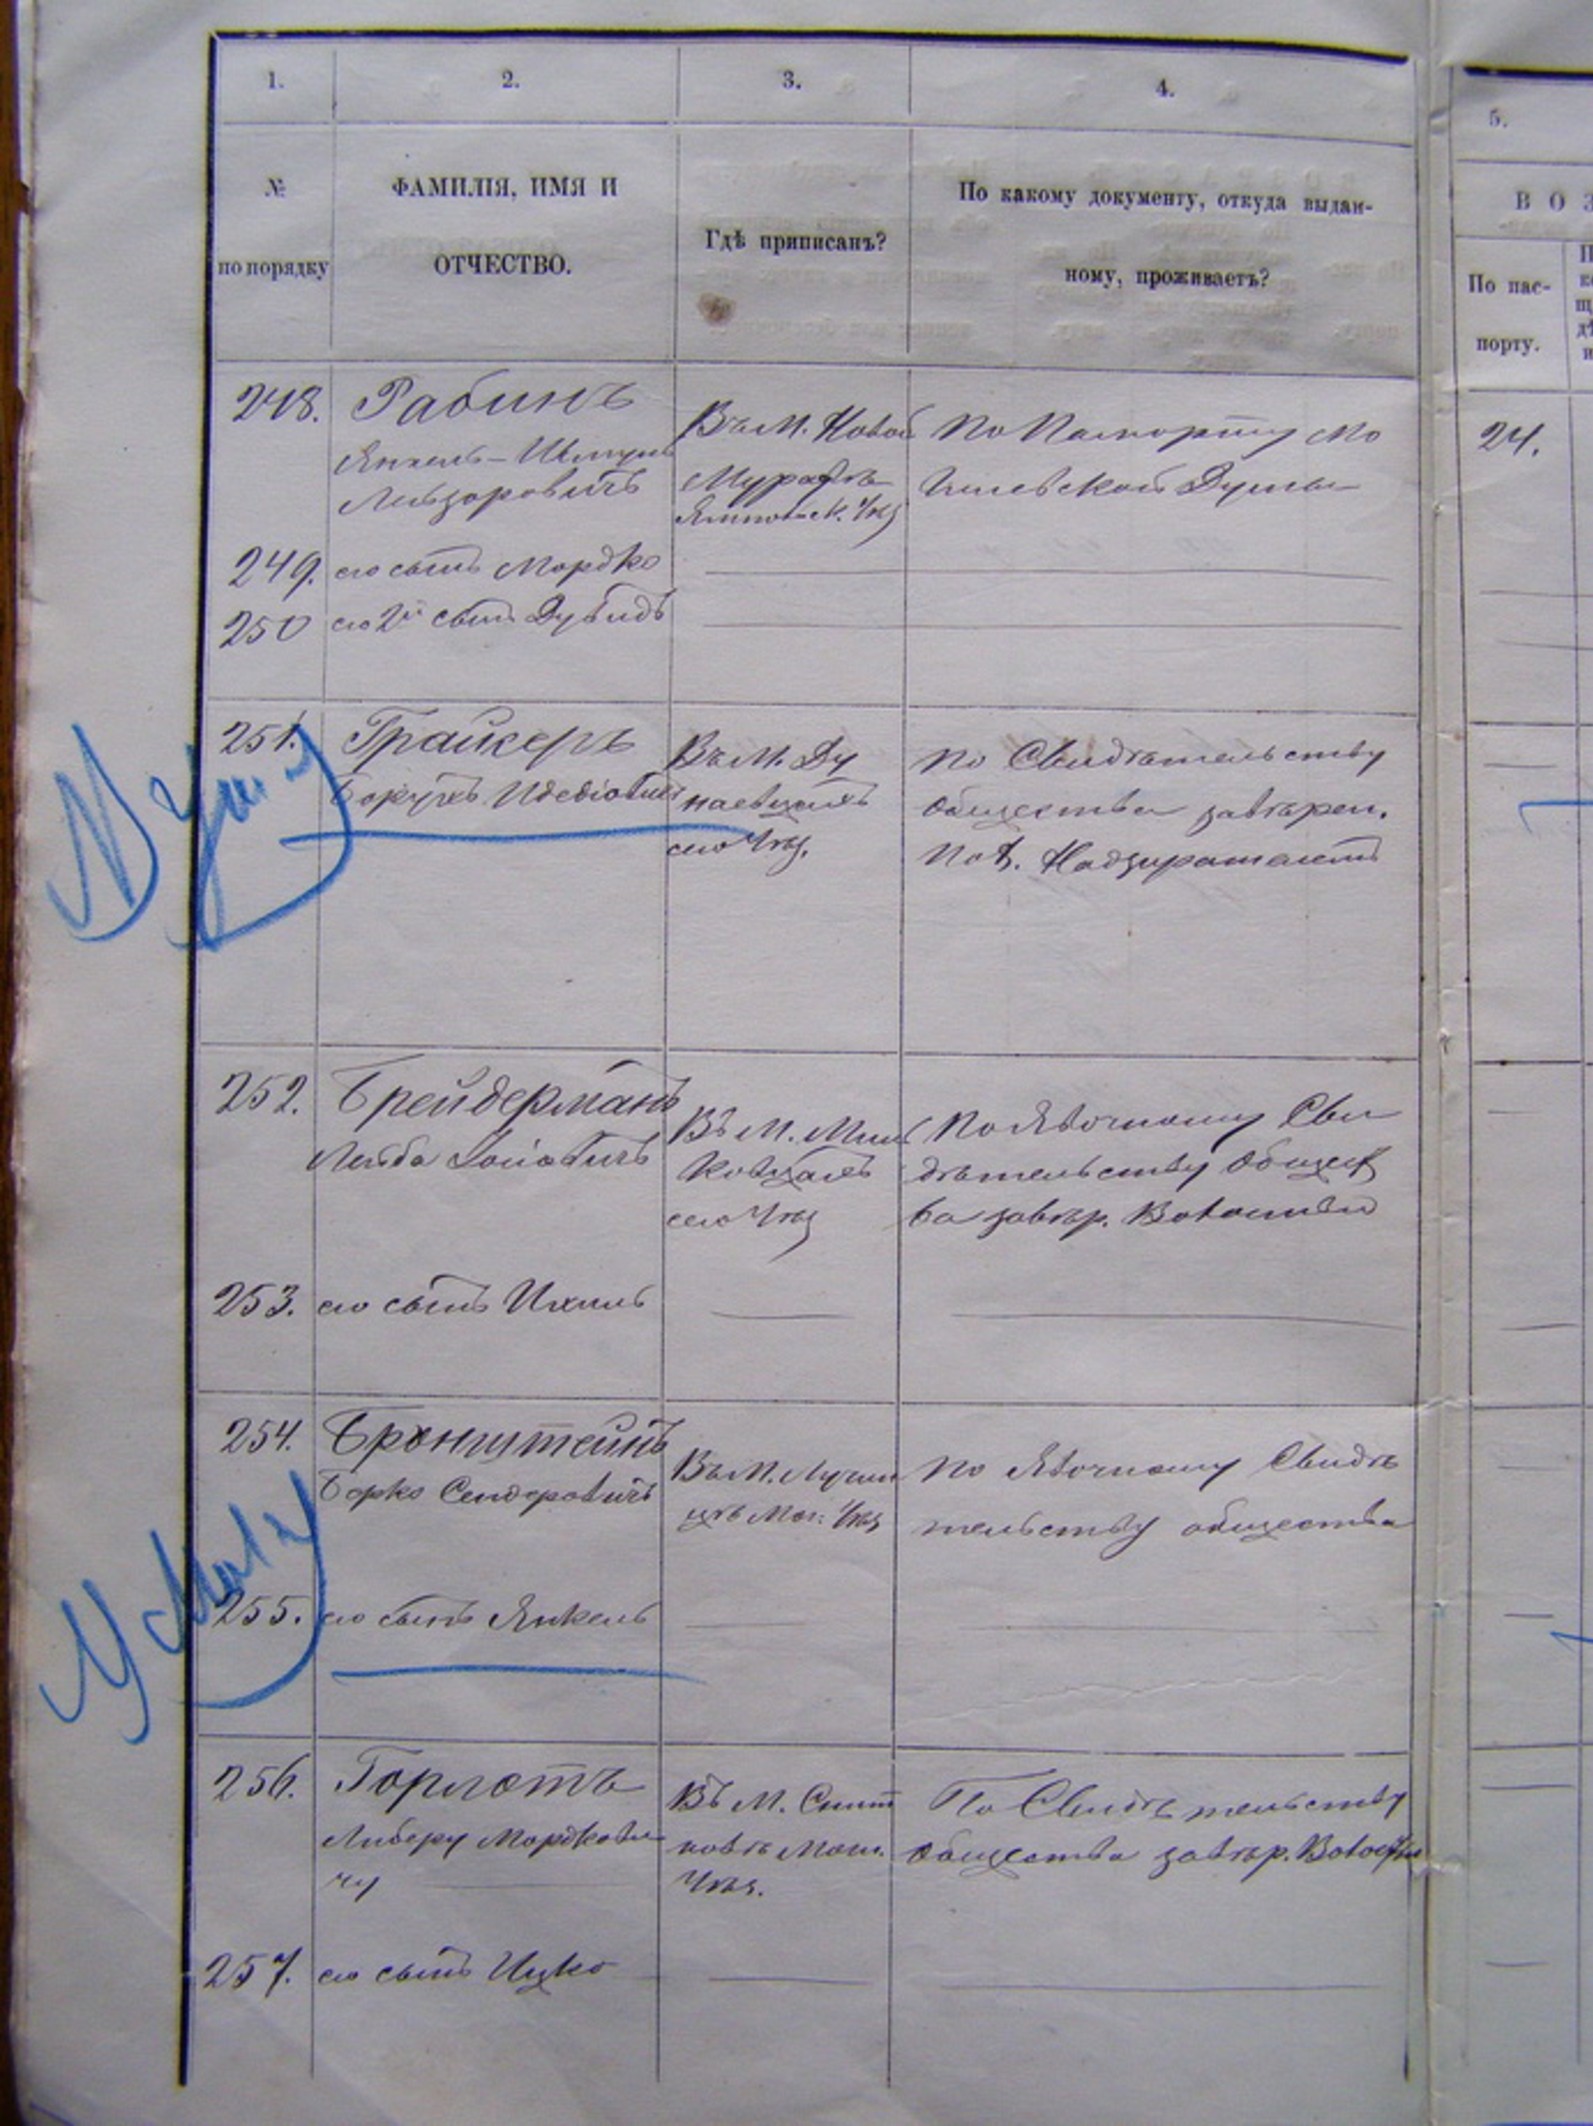 1.
2.
3.
4.
5.
№
по порядку
ФАМИЛІЯ, ИМЯ И
ОТЧЕСТВО.
Гдѣ приписанъ?
По какому документу, откуда выдан-
ному, проживаетъ?
ВОЗ
По пас-
порту.
248.
Рабинъ
Янкель-Шмуль
Лейзоровичъ
Въ М. Новой
Мурафѣ
Ямпольск. Уѣз
По Паспорту Мо
гилевской Думы
24.
249.
его сынъ Мордко
250
его 2й сынъ Дувидъ
251.
Грайсеръ
Борухъ
Въ М. Ду
наевцахъ
сего Уѣз.
По Свидѣтельству
Общества завѣрен.
Пол. Надзирателемъ
252.
Брейдерманъ
Лейба
Въ М. Минь
ковцахъ
сего Уѣз
По Явочному Сви
дѣтельству Общест
ва завѣр. Волостью
253.
его сынъ Ихиль
254.
Бронштейнъ
Борко Сендеровичъ
Въ М. Лучин
цѣ Мог. Уѣз
По Явочному Свидѣ
тельству общества
255.
его сынъ Янкель
256.
Горлотъ
Либеру Мордкови
чу
Въ М. Снит
ковѣ Мог.
Уѣз.
По Свидѣтельству
Общества завѣр. Волостью
257.
его сынъ Ицко